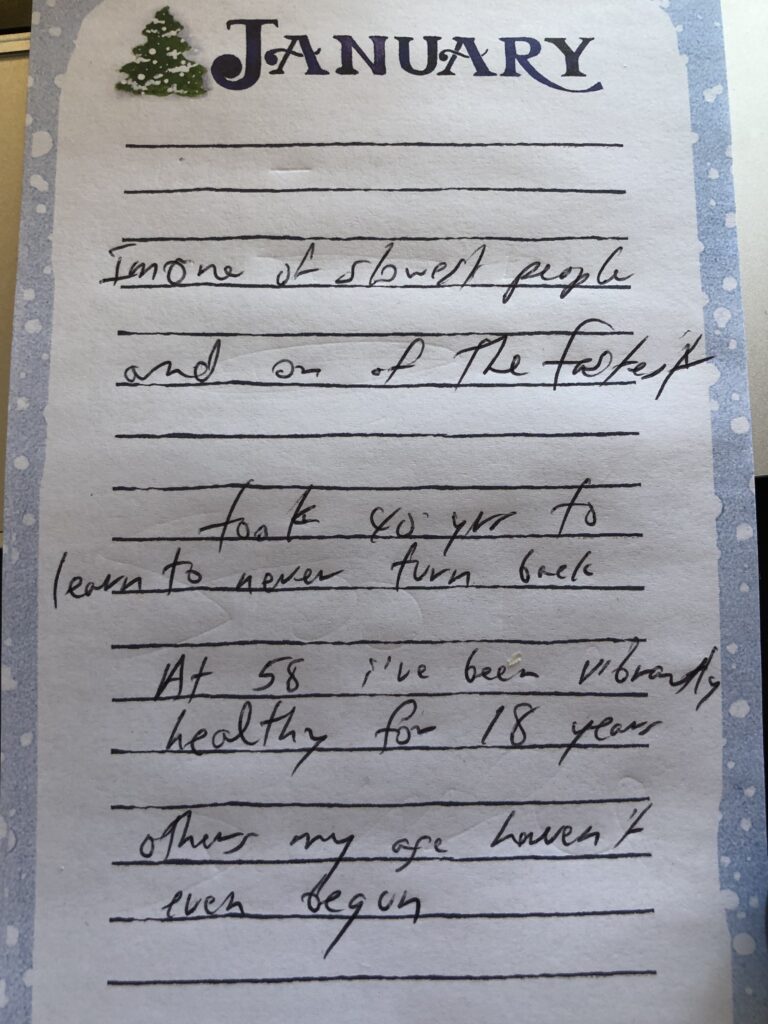 JANUARY
Im one of slowest people
and on of The fastest
took 40 yrs to
learn to never turn back
At 58 i've been vibrantly
healthy for 18 years
others my age haven't
even begun